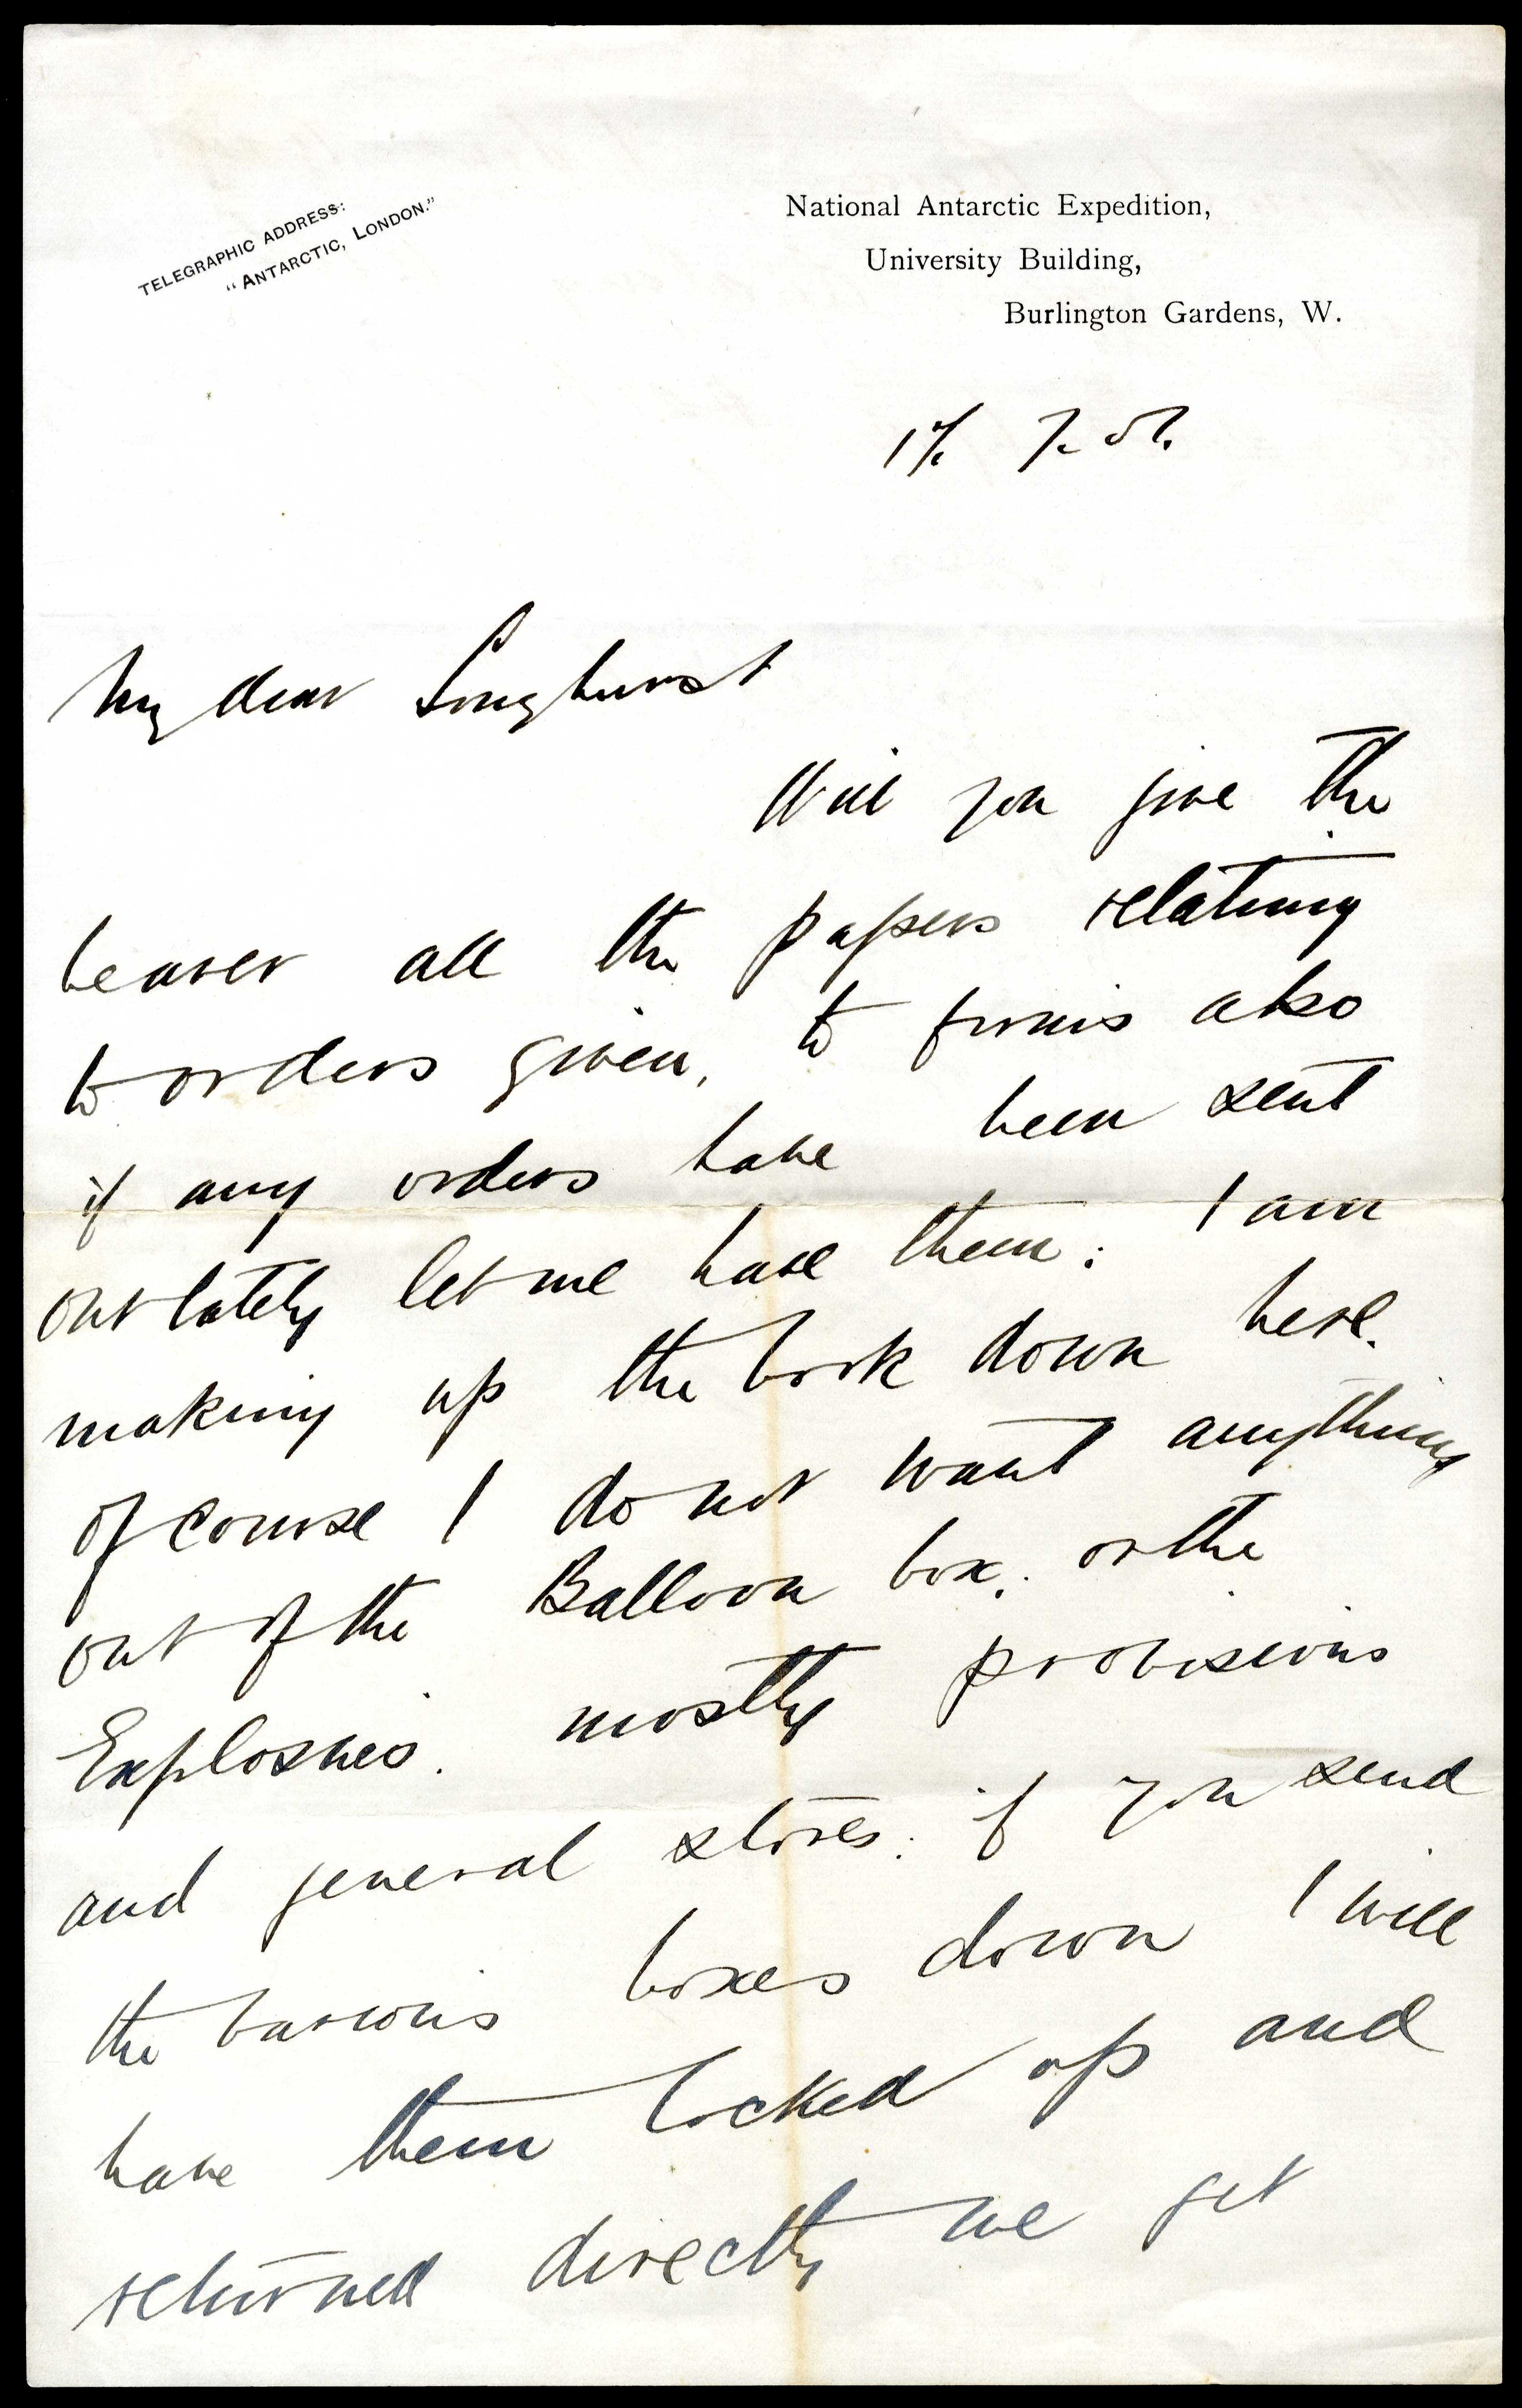 TELEGRAPHIC ADDRESS:
"ANTARCTIC, LONDON."
National Antarctic Expedition,
University Building,
Burlington Gardens, W.
17. 7. 01.
My dear Longhurst
Will you give the
bearer all the papers relating
to orders given, to firms also
if any orders have been sent
out lately let me have them: I am
making up the book down here.
of course I do not want anything
out of the Balloon box. or the
Explosives. mostly provisions
and general stores. if you send
the various boxes down I will
have them locked up and
returned directly we get